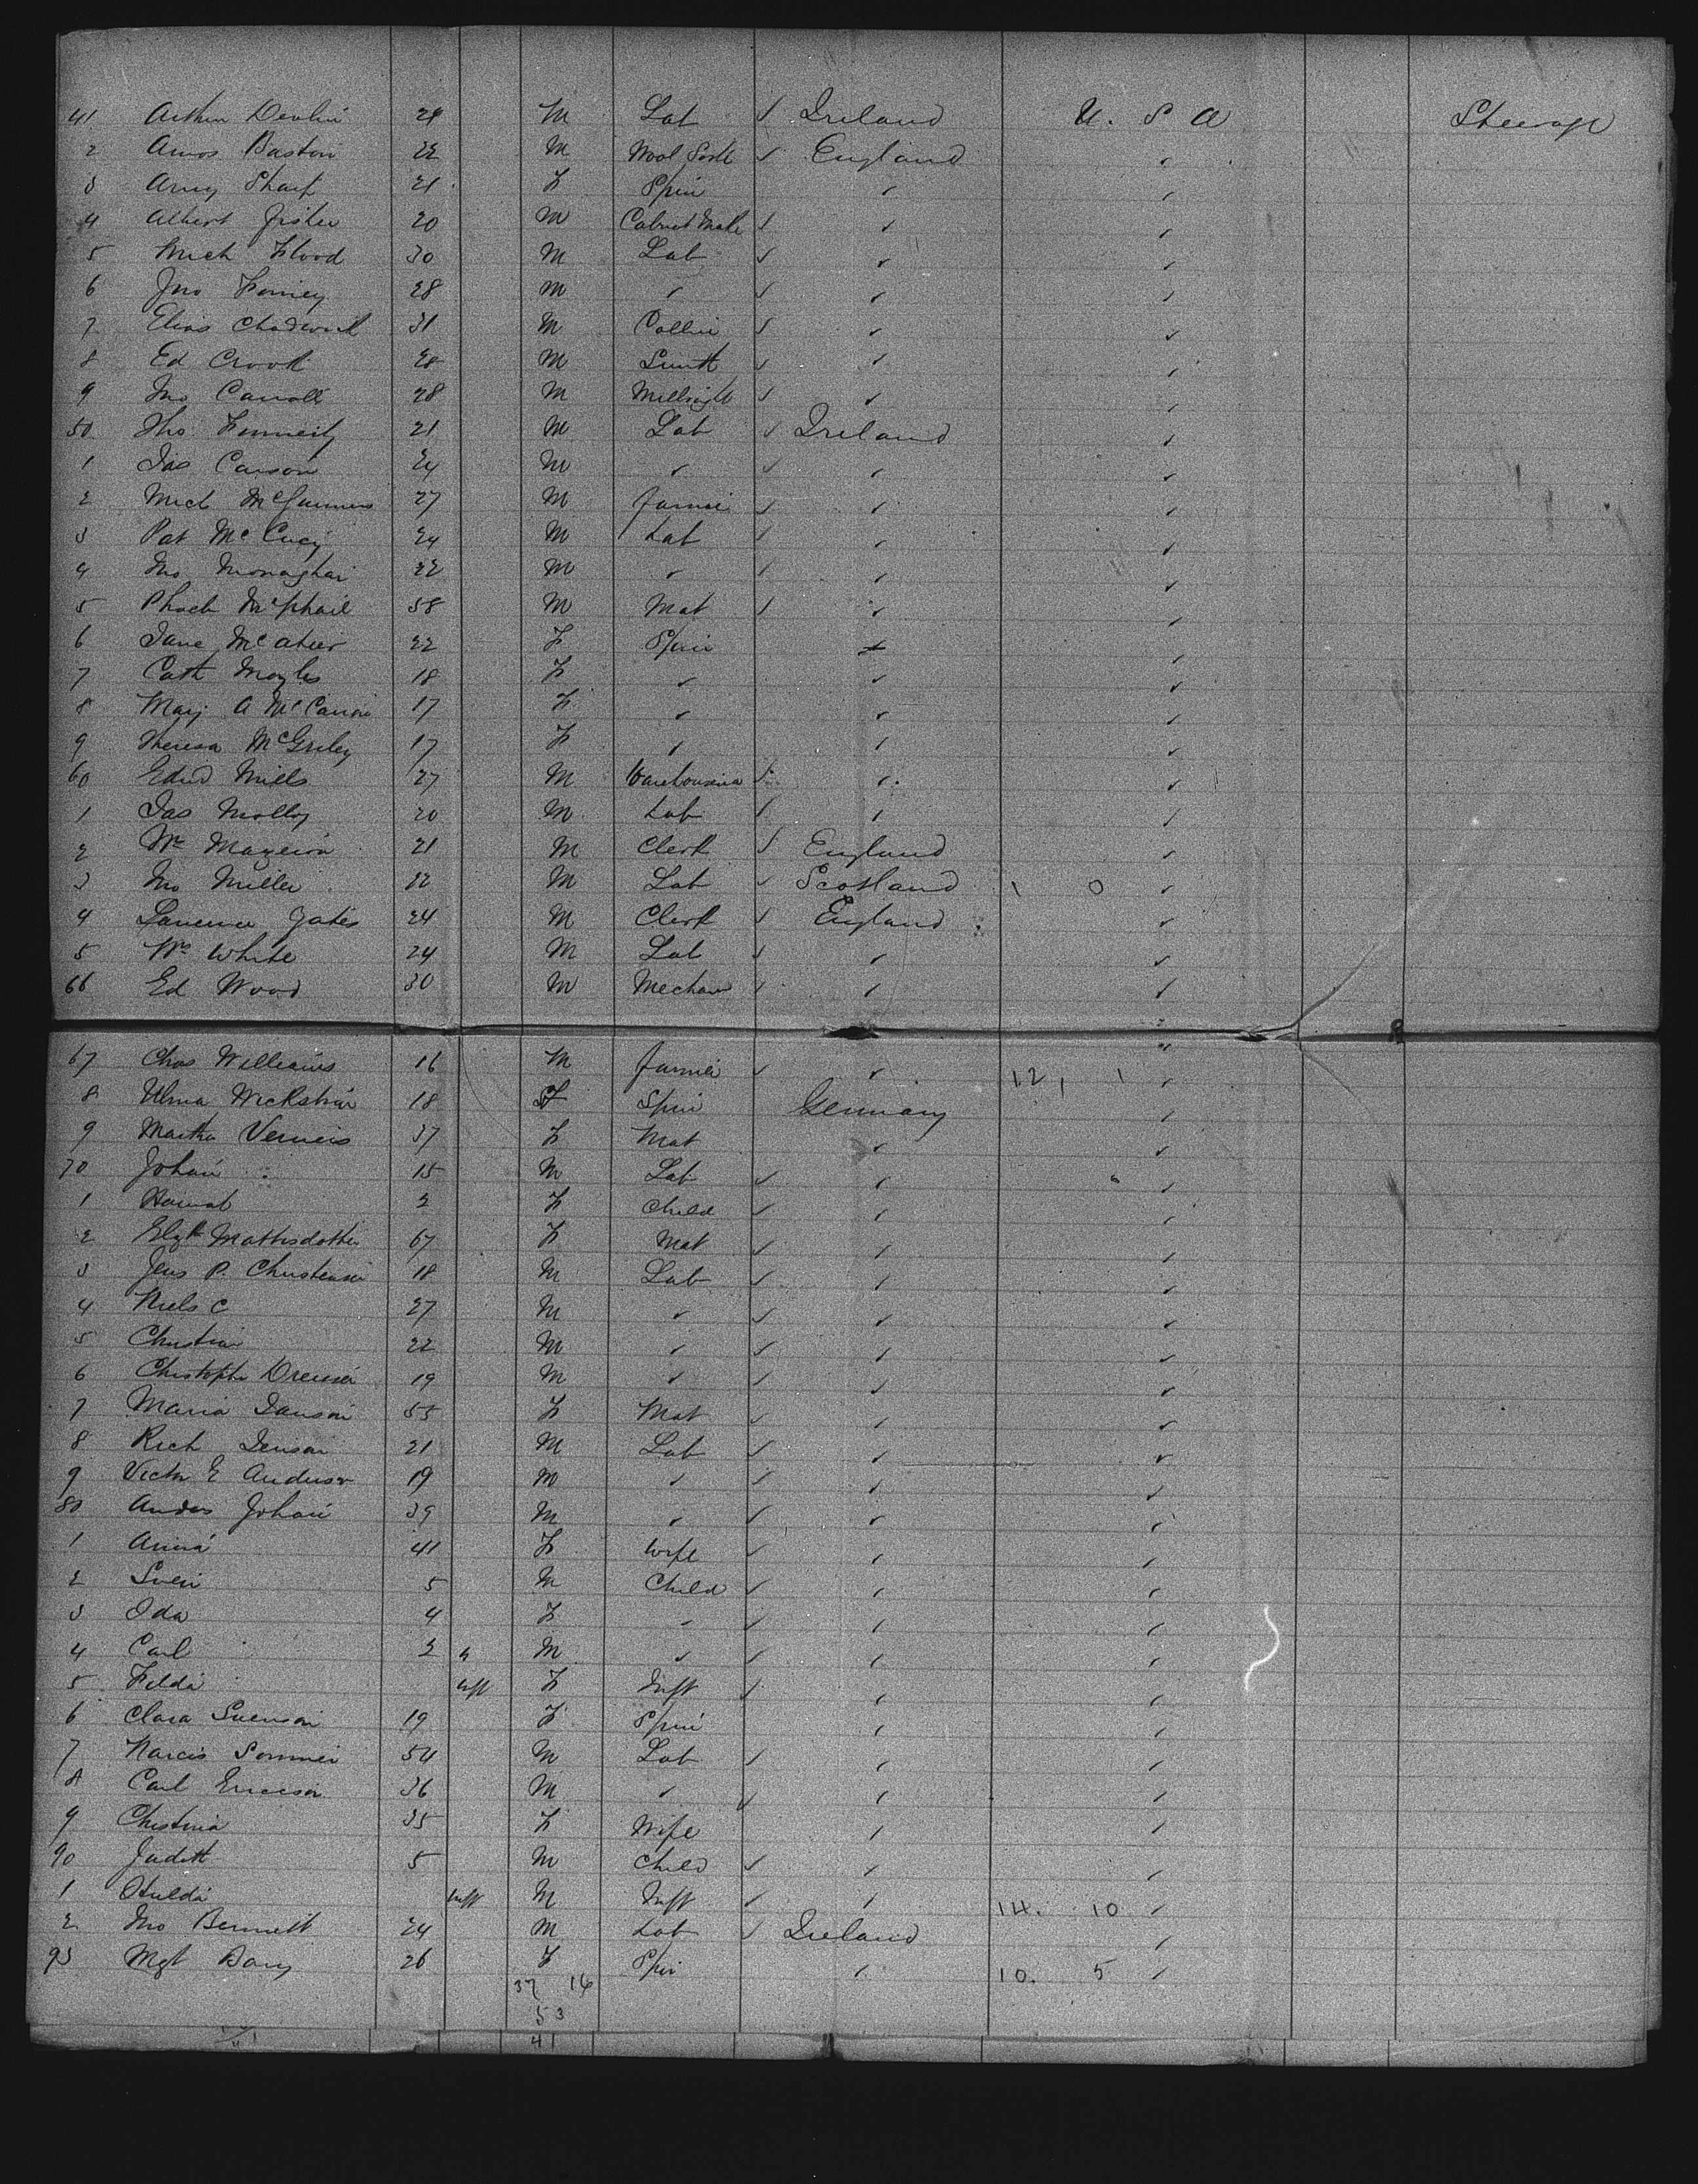 41 Arthur Devlin 24 M Lab ✓ Ireland U. S A Steerage
2 Amos Baston 22 M Wool Sortr ✓ England ✓
3 Amy Sharp 21 F Spin ✓ ✓
4 Albert Fisher 20 M Cabinet Make ✓ ✓ ✓
5 Mich Flood 30 M Lab ✓ ✓ ✓
6 Jno 28 M ✓ ✓ ✓ ✓
7 Elias Chadwick 31 M Collier ✓ ✓ ✓
8 Ed Crook 28 M Smith ✓ ✓ ✓
9 Jno Carroll 28 M Millwright ✓ ✓ ✓
50 Tho 21 M Lab ✓ Ireland ✓
1 Jas Carson 24 M ✓ ✓ ✓ ✓
2 Mich 27 M Farmer ✓ ✓ ✓
3 Pat 24 M Lab ✓ ✓ ✓
4 Jno Monaghan 22 M ✓ ✓ ✓ ✓
5 Phoeb McPhail 38 M Mat ✓ ✓ ✓
6 Jane McAteer 22 F Spin ✓ ✓
7 Cath Moyles 18 F ✓ ✓ ✓
8 Mary A McCarron 17 F ✓ ✓ ✓
9 Theresa 17 F ✓ ✓ ✓
60 Edwd Mills 27 M Warehousema ✓ ✓ ✓
1 Jas Molloy 20 M Lab ✓ ✓ ✓
2 Wm 21 M Clerk ✓ England ✓
3 Jno Miller 22 M Lab ✓ Scotland 1 0 ✓
4 Lawrence Yates 24 M Clerk ✓ England ✓
5 Wm White 24 M Lab ✓ ✓ ✓
66 Ed Wood 30 M Mechan ✓ ✓ ✓
"
67 Chas Williams 16 M Farmer ✓ ✓ 12 1 1 ✓
8 Wickstrom 18 F Spin Germany ✓
9 Martha 37 F Mat ✓ ✓
70 Johan 15 M Lab ✓ ✓ ✓
1 Hannah 2 F Child ✓ ✓ ✓
2 Elzth Mattisdotter 67 F Mat ✓ ✓ ✓
3 Jens P. Christensen 18 M Lab ✓ ✓ ✓
4 Niels C 27 M ✓ ✓ ✓ ✓
5 Christian 22 M ✓ ✓ ✓ ✓
6 Christophe 19 M ✓ ✓ ✓ ✓
7 Maria Janson 55 F Mat ✓ ✓ ✓
8 Rich Jenson 21 M Lab ✓ ✓ ✓
9 Victor E Anderson 19 M ✓ ✓ ✓ ✓
80 Anders Johan 39 M ✓ ✓ ✓ ✓
1 Anna 41 F Wife ✓ ✓ ✓
2 Sven 5 M Child ✓ ✓ ✓
3 Oda 4 F ✓ ✓ ✓ ✓
4 Carl 2 M ✓ ✓ ✓ ✓
5 Inft F Inft ✓ ✓ ✓
6 Clara Svenson 19 F Spin ✓ ✓
7 Narcis Sommer 54 M Lab ✓ ✓ ✓
8 Carl Ericson 36 M ✓ ✓ ✓ ✓
9 Christina 35 F Wife ✓ ✓
90 Judith 5 M Child ✓ ✓ ✓
1 Hulda Inft M Inft ✓ ✓ 14. 10 ✓
2 Jno Bennett 24 M Lab ✓ Ireland ✓
93 Mgt 26 F Spin ✓ 10. 5 ✓
37 16
53
41